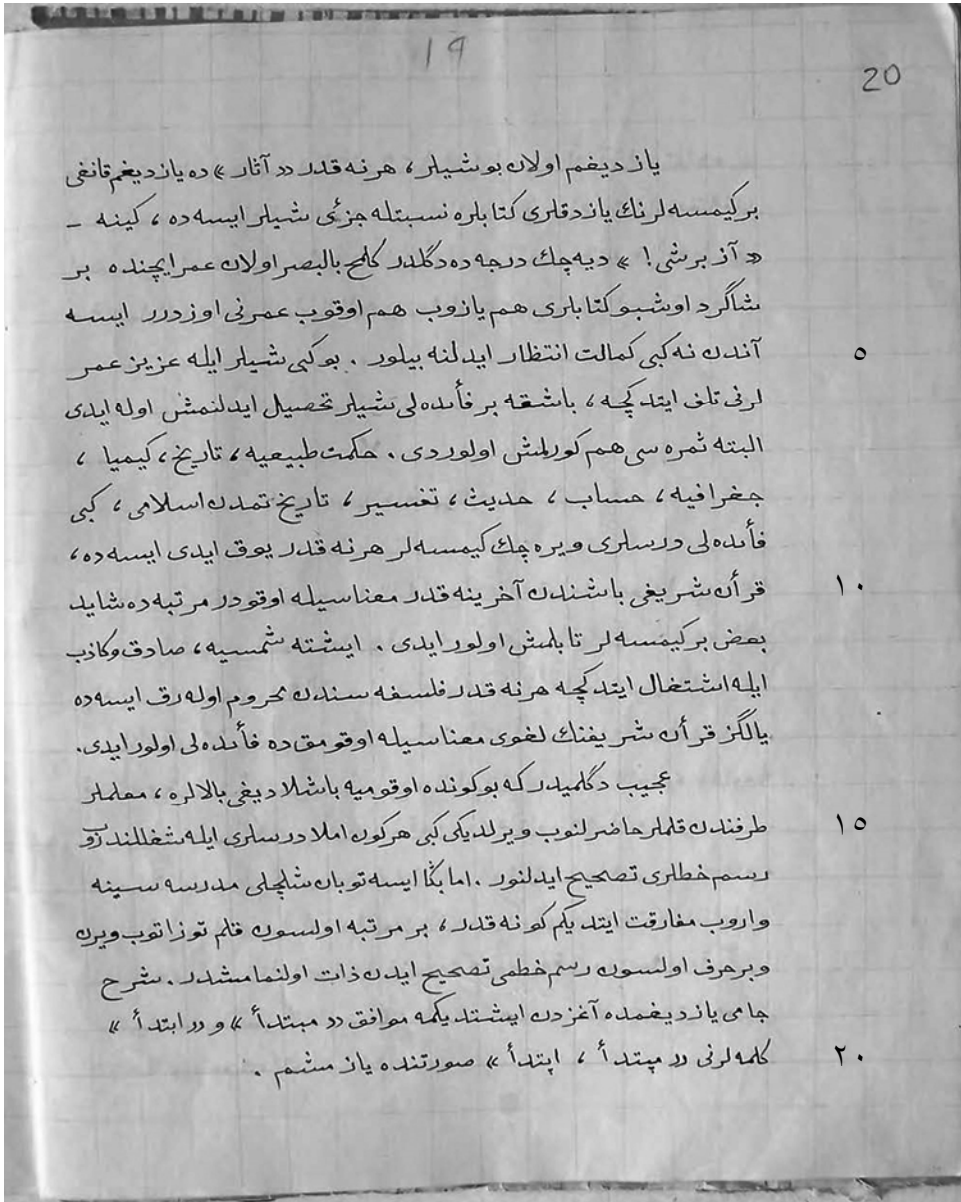 19
20
یازدیغم اولان بو شیلر، هر نه قدر «آثار» ده یازدیغم قانغی
بر کیمسه لرنك یازدقلری کتابلره نسبتله جزئی شیلر ایسه ده، کینه –
«آز بر شی!» دیه چك درجه ده دگلدر کلمح بالبصر اولان عمر ایچنده بر
شاگرد اوشبو کتابلری هم یازوب هم اوقوب عمرنی اوزدرر ایسه
آندن نه کبی کمالت انتظار ایدلنه بیلور. بو کبی شیلر ایله عزیز عمر ٥
لرنی تلف ایتدکچه، باشقه بر فأىده لی شیلر تحصیل ایدلنمش اوله ایدی
البته ثمره سی هم کورلمش اولوردی. حکمت طبیعیه، تاریخ، کیمیا،
جغرافیه، حساب، حدیث، تفسیر، تاریخ تمدن اسلامی، کبی
فأىده لی درسلری ویره چك کیمسه لر هر نه قدر یوق ایدی ایسه ده،
قرأن شریفی باشندن آخرینه قدر معناسیله اوقودر مرتبه ده شاید ١٠
بعض بر کیمسه لر تابلمش اولور ایدی. ایشته شمسیه، صادق وکاذب
ایله اشتغال ایتدکچه هر نه قدر فلسفه سندن محروم اوله رق ایسه ده
یالگز قرأن شریفنك لغوی معناسیله اوقومق ده فأىده لی اولور ایدی.
عجیب دگلمیدر که بو کونده اوقومیه باشلادیغی بالالره، معلملر
طرفندن قلملر حاضرلنوب ویرلدیکی کبی هر کون املا درسلری ایله شغللندروب ١٥
رسم خطلری تصحیح ایدلنور. اما بگا ایسه توبان شلچلی مدرسه سینه
واروب مفارقت ایتدیکم کونه قدر، بر مرتبه اولسون قلم توزاتوب ویرن
وبر حرف اولسون رسم خطمی تصحیح ایدن ذات اولنمامشدر. شرح
جامی یازدیغمده آغزدن ایشتدیکمه موافق «مبتدأ» و «ابتدأ»
کلمه لرنی «مپتدأ، اپتدأ» صورتنده یازمشم. ٢٠